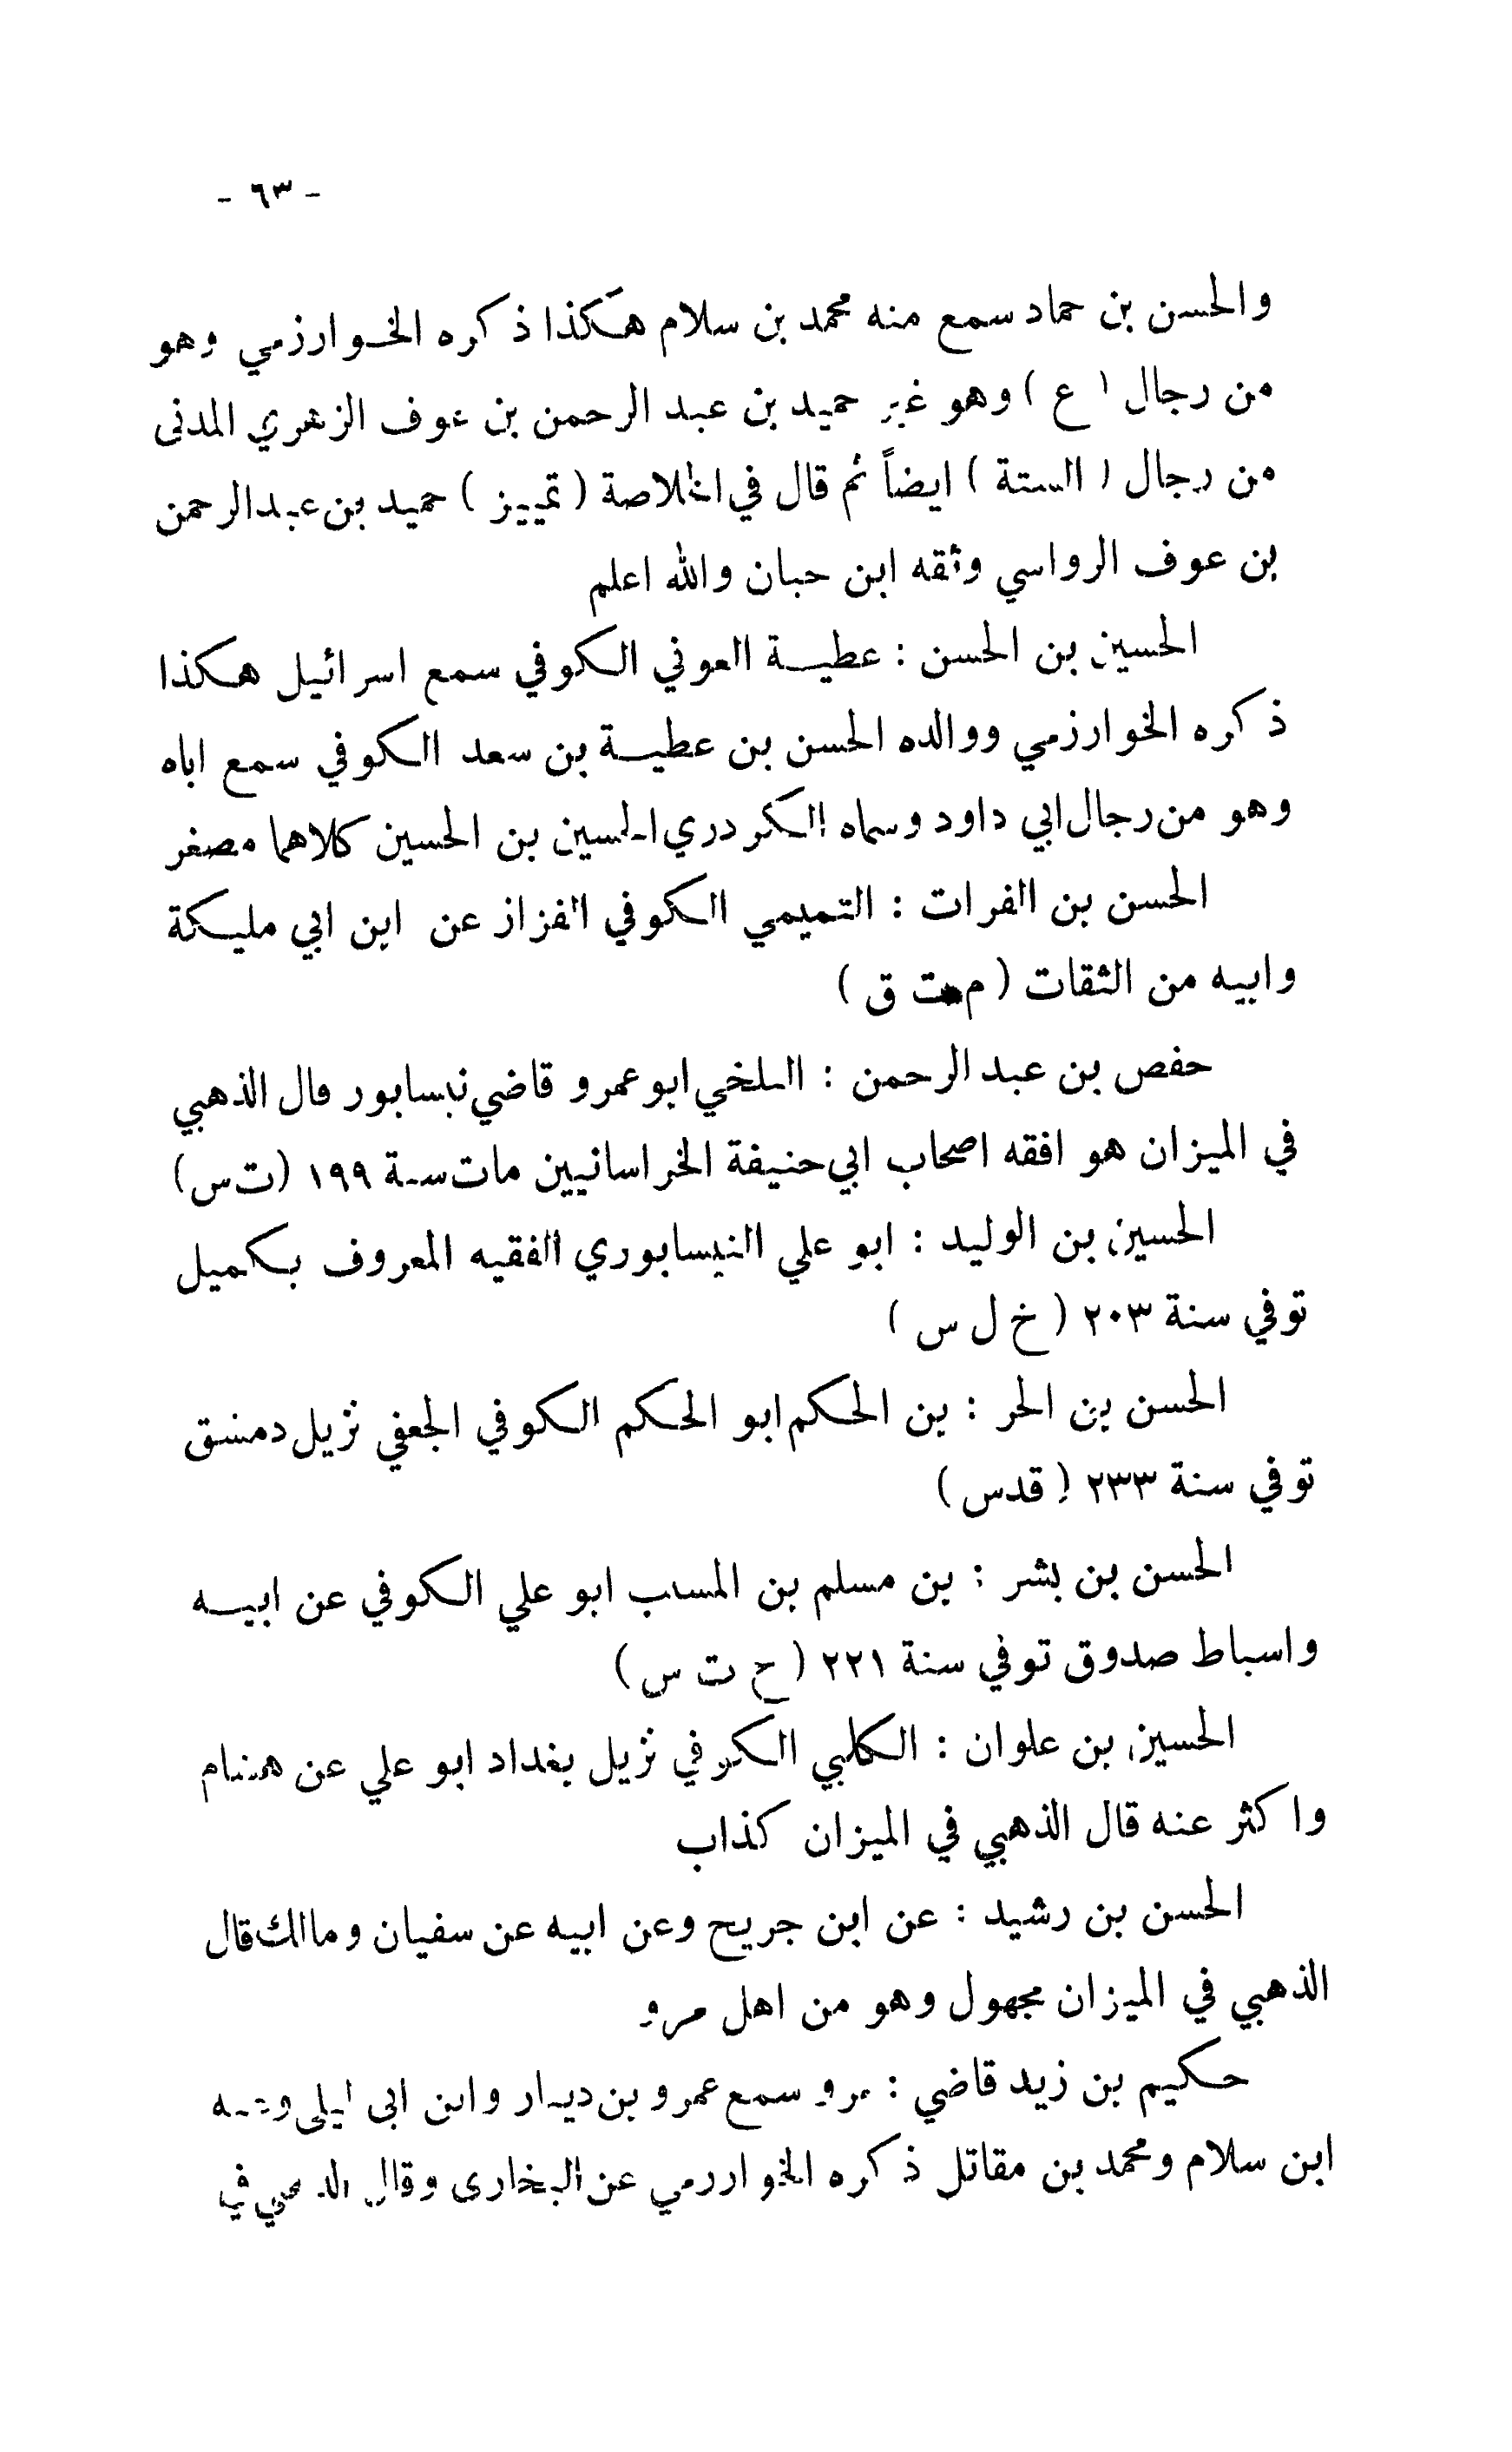 - ٦٣ -
والحسن بن حماد سمع منه محمد بن سلام هكذا ذكره الخوارزمي وهو
من رجال ( ع ) وهو غير حميد بن عبد الرحمن بن عوف الزهري المدنى
من رجال ( الستة ) ايضاً ثم قال في الخلاصة ( تمييز ) حميد بن عبد الرحمن
بن عوف الرواسي وثقه ابن حبان والله اعلم
الحسين بن الحسن : عطية العوني الكوفي سمع اسرائيل هكذا
ذكره الخوارزمي ووالده الحسن بن عطية بن سعد الكوفي سمع اباه
وهو من رجال ابي داود وسماه الكردري الحسين بن الحسين كلاهما مصغر
الحسن بن الفرات : التميمي الكوفي الفزاز عن ابن ابي مليكة
وابيه من الثقات ( م ت ق )
حفص بن عبد الرحمن : البلخي ابو عمرو قاضي نيسابور قال الذهبي
في الميزان هو افقه اصحاب ابي حنيفة الخراسانيين مات سنة ١٩٩ (ت س)
الحسين بن الوليد : ابو علي النيسابوري الفقيه المعروف بكميل
توفي سنة ٢٠٣ ( خ ل س )
الحسن بن الحر : بن الحكم ابو الحكم الكوفي الجعفي نزيل دمشق
توفي سنة ٢٣٣ ( قدس )
الحسن بن بشر : بن مسلم بن المسيب ابو علي الكوفي عن ابيه
واسباط صدوق توفي سنة ٢٢١ ( ح ت س )
الحسين بن علوان : الكلبي الكوفي نزيل بغداد ابو علي عن هشام
واكثر عنه قال الذهبي في الميزان كذاب
الحسن بن رشيد : عن ابن جريح وعن ابيه عن سفيان ومالك قال
الذهبي في الميزان مجهول وهو من اهل مرو
حكيم بن زيد قاضي : مرو سمع عمرو بن دينار وابن ابى ليلى
ابن سلام ومحمد بن مقاتل ذكره الخوارزمي عن البخارى وقال الذهبي في